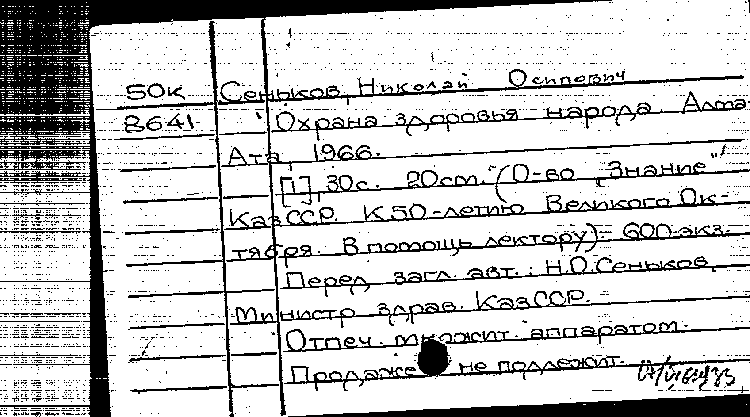 50к Сеньков, Николай Осипович
8641 Охрана здоровья народа. Алма-
Ата, 1966.
[1], 30с. 20см. (О-во "Знание"
КазССР. К 50-летию Великого Ок-
тября. В помощь лектору). 600 экз.
Перед загл. авт.: Н.О. Сеньков,
Министр здрав. КазССР.
Отпеч. множит. аппаратом.
Продаже не подлежит.